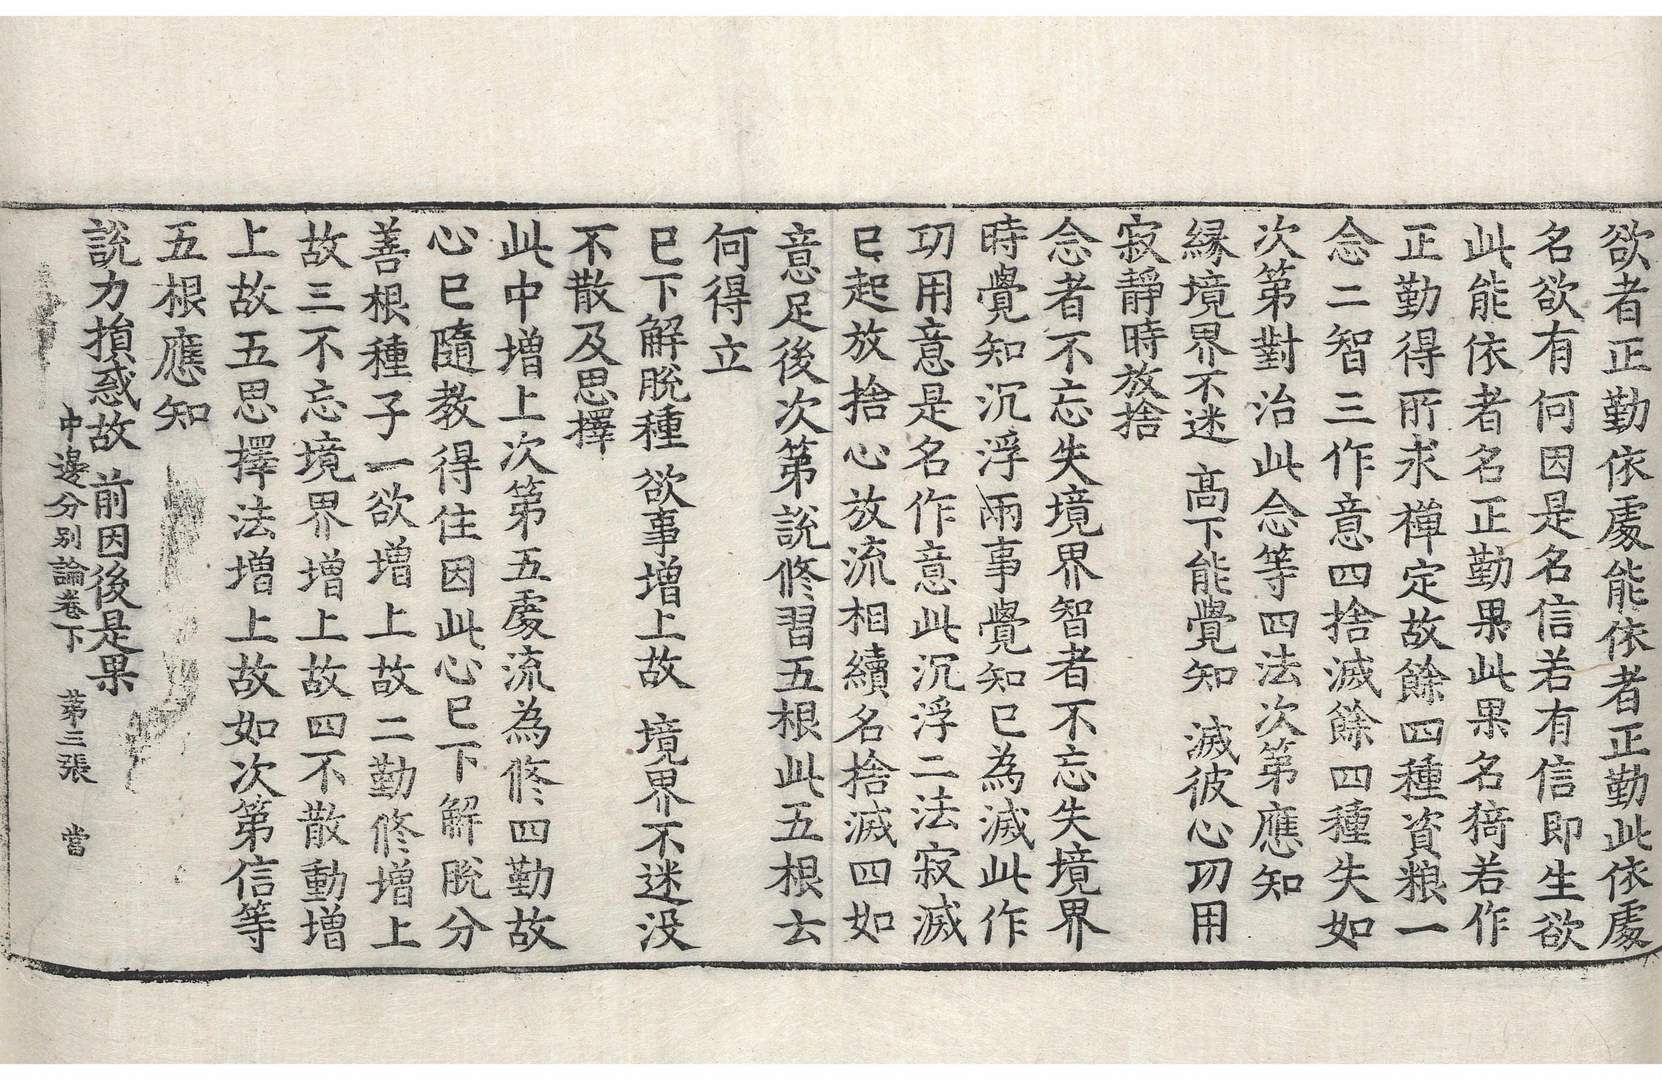 欲者正勤依處能依者正勤此依處
名欲有何因是名信若有信即生欲
此能依者名正勤果此果名猗若作
正勤得所求禪定故餘四種資粮一
念二智三作意四捨滅餘四種失如
次第對治此念等四法次第應知
縁境界不迷 高下能覺知 滅彼心功用
寂靜時放捨
念者不忘失境界智者不忘失境界
時覺知沉浮兩事覺知已為滅此作
功用意是名作意此沉浮二法寂滅
已起放捨心放流相續名捨滅四如
意足後次第說修習五根此五根云
何得立
已下解脫種 欲事增上故 境界不迷没
不散及思擇
此中增上次第五處流為修四勤故
心已隨教得住因此心已下解脫分
善根種子一欲增上故二勤修增上
故三不忘境界增上故四不散動增
上故五思擇法增上故如次第信等
五根應知
說力損惑故 前因後是果
中邊分别論卷下 第三張 當